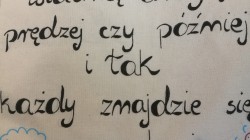 prędzej czy później
i tak
każdy znajdzie się